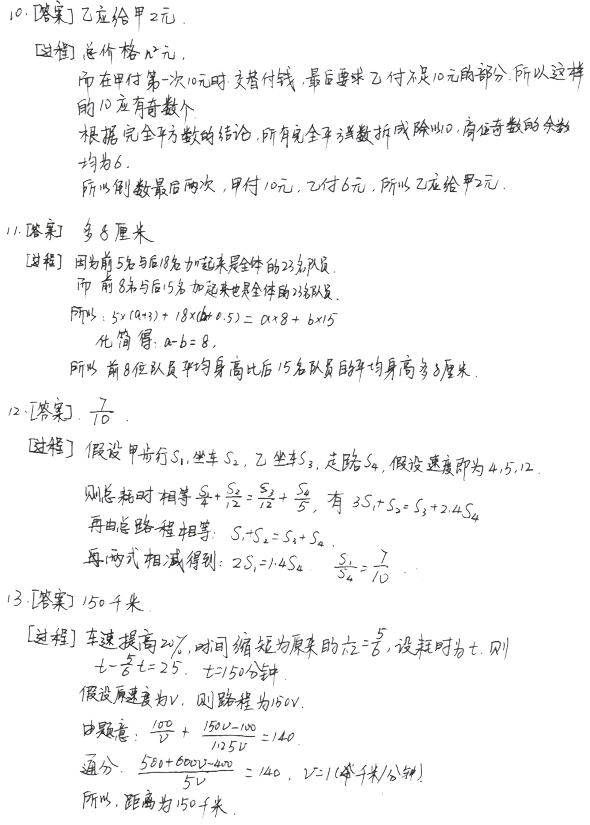 10.[答案] 乙应给甲2元.
[过程] 总价格n²元,
而在甲付第一次10元时,交替付钱,最后要求乙付不足10元的部分.所以这样
的10应有奇数个.
根据完全平方数的结论,所有完全平方数拆成除以10,商位奇数的余数
均为6.
所以倒数最后两次,甲付10元,乙付6元,所以乙应给甲2元.
11.[答案] 多8厘米
[过程] 因为前5名与后18名加起来是全体的23名队员.
而前8名与后15名加起来也是全体的23名队员.
所以:5×(a+3)+18×(b+0.5)=a×8+b×15
化简得:a-b=8,
所以前8位队员平均身高比后15名队员的平均身高多8厘米.
12.[答案]. 7/10.
[过程] 假设甲步行S₁,坐车S₂,乙坐车S₃,走路S₄,假设速度即为4,5,12.
则总耗时相等 S₁/4+S₂/12=S₃/12+S₄/5,有 3S₁+S₂=S₃+2.4S₄
再由总路程相等:S₁+S₂=S₃+S₄.
再两式相减得到:2S₁=1.4S₄. S₁/S₄=7/10.
13.[答案] 150千米.
[过程] 车速提高20%,时间缩短为原来的1/1.2=5/6,设耗时为t.则
t-5/6t=25. t=150分钟.
假设原速度为v,则路程为150v.
由题意:100/v+(150v-100)/1.25v=140.
通分.(500+600v-400)/5v=140,v=1(千米/分钟)
所以,距离为150千米.